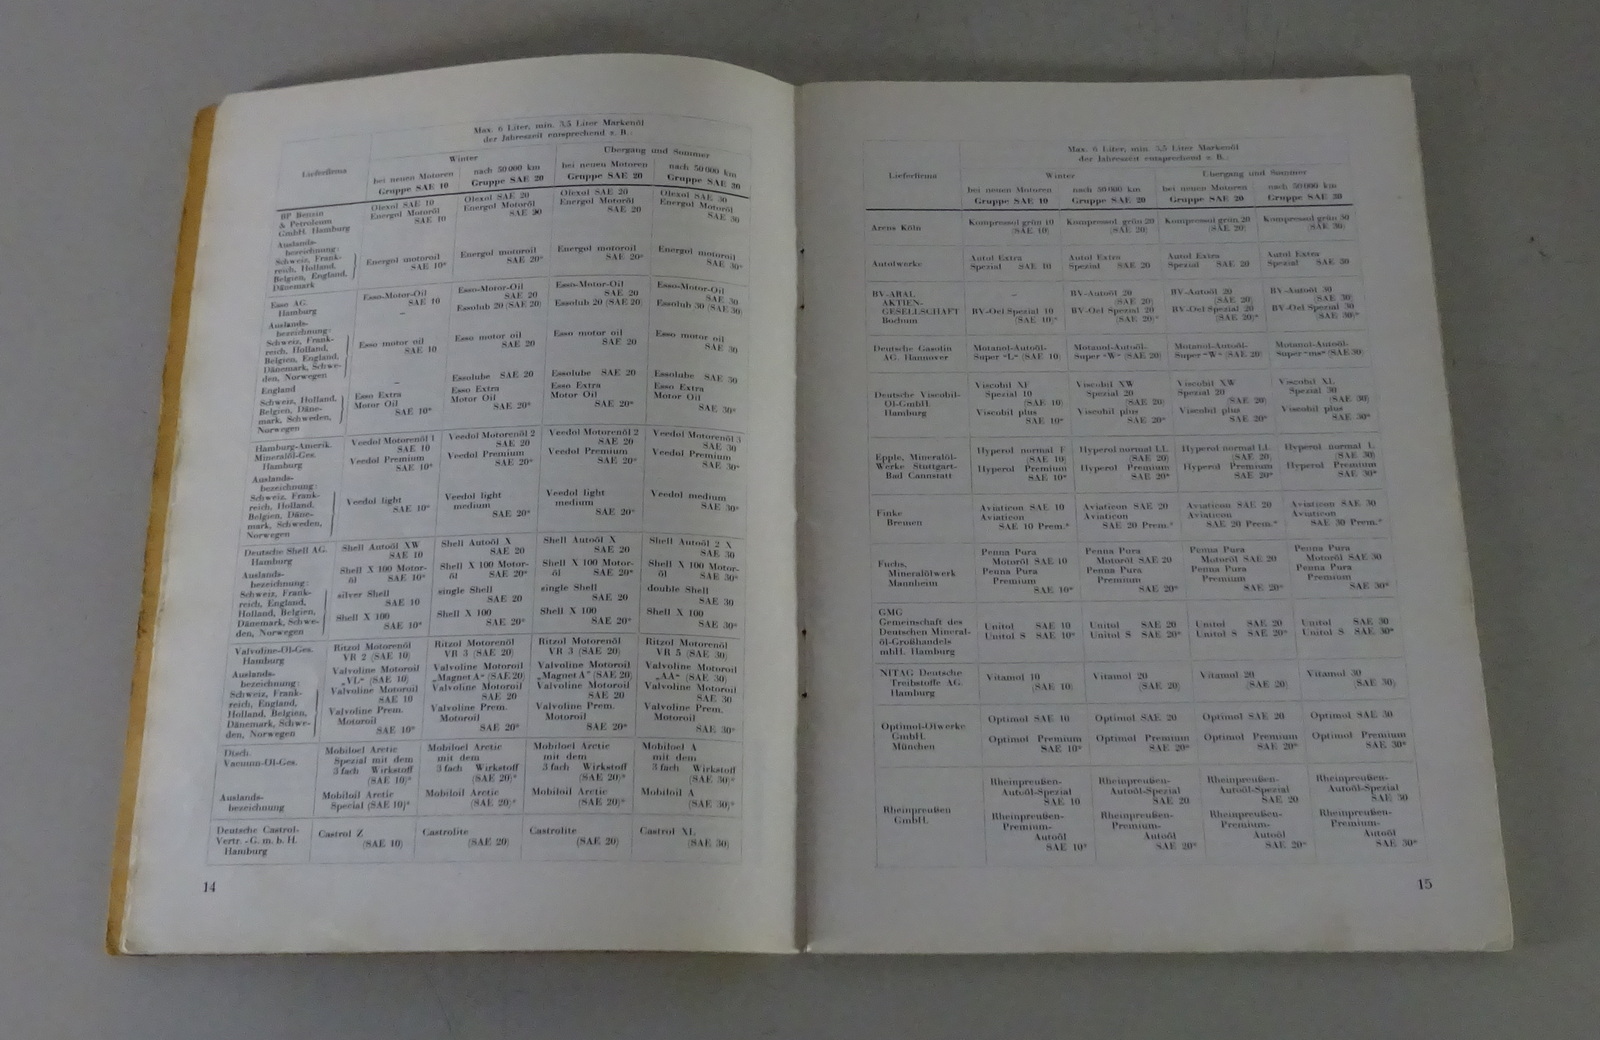 Max. 6 Liter, min. 3,5 Liter Markenöl
der Jahreszeit entsprechend z. B.:
Lieferfirma
Winter
Übergang und Sommer
bei neuen Motoren
Gruppe SAE 10
nach 50 000 km
Gruppe SAE 20
bei neuen Motoren
Gruppe SAE 20
nach 50 000 km
Gruppe SAE 20
BP Benzin
& Petroleum
GmbH. Hamburg
Olexol SAE 10
Energol Motoröl
SAE 10
Olexol SAE 20
Energol Motoröl
SAE 20
Olexol SAE 20
Energol Motoröl
SAE 20
Olexol SAE 30
Energol Motoröl
SAE 30
Auslands-
bezeichnung:
Schweiz, Frank-
reich, Holland,
Belgien, England,
Dänemark
Energol motoroil
SAE 10*
Energol motoroil
SAE 20*
Energol motoroil
SAE 20*
Energol motoroil
SAE 30*
Esso AG.
Hamburg
Esso-Motor-Oil
SAE 10
–
Esso-Motor-Oil
SAE 20
Essolub 20 (SAE 20)
Esso-Motor-Oil
SAE 20
Essolub 20 (SAE 20)
Esso-Motor-Oil
SAE 30
Essolub 30 (SAE 30)
Auslands-
bezeichnung:
Schweiz, Frank-
reich, Holland,
Belgien, England,
Dänemark, Schwe-
den, Norwegen
Esso motor oil
SAE 10
Esso motor oil
SAE 20
Esso motor oil
SAE 20
Esso motor oil
SAE 30
England
–
Essolube SAE 20
Essolube SAE 20
Essolube SAE 30
Schweiz, Holland,
Belgien, Däne-
mark, Schweden,
Norwegen
Esso Extra
Motor Oil
SAE 10*
Esso Extra
Motor Oil
SAE 20*
Esso Extra
Motor Oil
SAE 20*
Esso Extra
Motor Oil
SAE 30*
Hamburg-Amerik.
Mineralöl-Ges.
Hamburg
Veedol Motorenöl 1
SAE 10
Veedol Premium
SAE 10*
Veedol Motorenöl 2
SAE 20
Veedol Premium
SAE 20*
Veedol Motorenöl 2
SAE 20
Veedol Premium
SAE 20*
Veedol Motorenöl 3
SAE 30
Veedol Premium
SAE 30*
Auslands-
bezeichnung:
Schweiz, Frank-
reich, Holland,
Belgien, Däne-
mark, Schweden,
Norwegen
Veedol light
SAE 10*
Veedol light
medium
SAE 20*
Veedol light
medium
SAE 20*
Veedol medium
SAE 30*
Deutsche Shell AG.
Hamburg
Shell Autoöl XW
SAE 10
Shell X 100 Motor-
öl SAE 10*
Shell Autoöl X
SAE 20
Shell X 100 Motor-
öl SAE 20*
Shell Autoöl X
SAE 20
Shell X 100 Motor-
öl SAE 20*
Shell Autoöl 2 X
SAE 30
Shell X 100 Motor-
öl SAE 30*
Auslands-
bezeichnung:
Schweiz, Frank-
reich, England,
Holland, Belgien,
Dänemark, Schwe-
den, Norwegen
silver Shell
SAE 10
Shell X 100
SAE 10*
single Shell
SAE 20
Shell X 100
SAE 20*
single Shell
SAE 20
Shell X 100
SAE 20*
double Shell
SAE 30
Shell X 100
SAE 30*
Valvoline-Öl-Ges.
Hamburg
Ritzol Motorenöl
VR 2 (SAE 10)
Ritzol Motorenöl
VR 3 (SAE 20)
Ritzol Motorenöl
VR 3 (SAE 20)
Ritzol Motorenöl
VR 5 (SAE 30)
Auslands-
bezeichnung:
Schweiz, Frank-
reich, England,
Holland, Belgien,
Dänemark, Schwe-
den, Norwegen
Valvoline Motoroil
„VL“ (SAE 10)
Valvoline Motoroil
SAE 10
Valvoline Prem.
Motoroil
SAE 10*
Valvoline Motoroil
„Magnet A“ (SAE 20)
Valvoline Motoroil
SAE 20
Valvoline Prem.
Motoroil
SAE 20*
Valvoline Motoroil
„Magnet A“ (SAE 20)
Valvoline Motoroil
SAE 20
Valvoline Prem.
Motoroil
SAE 20*
Valvoline Motoroil
„AA“ (SAE 30)
Valvoline Motoroil
SAE 30
Valvoline Prem.
Motoroil
SAE 30*
Dtsch.
Vacuum-Öl-Ges.
Mobiloel Arctic
Spezial mit dem
3 fach Wirkstoff
(SAE 10)*
Mobiloel Arctic
mit dem
3 fach Wirkstoff
(SAE 20)*
Mobiloel Arctic
mit dem
3 fach Wirkstoff
(SAE 20)*
Mobiloel A
mit dem
3 fach Wirkstoff
(SAE 30)*
Auslands-
bezeichnung
Mobiloil Arctic
Special (SAE 10)*
Mobiloil Arctic
(SAE 20)*
Mobiloil Arctic
(SAE 20)*
Mobiloil A
(SAE 30)*
Deutsche Castrol-
Vertr. - G. m. b. H.
Hamburg
Castrol Z
(SAE 10)
Castrolite
(SAE 20)
Castrolite
(SAE 20)
Castrol XL
(SAE 30)
14
Max. 6 Liter, min. 3,5 Liter Markenöl
der Jahreszeit entsprechend z. B.:
Lieferfirma
Winter
Übergang und Sommer
bei neuen Motoren
Gruppe SAE 10
nach 50 000 km
Gruppe SAE 20
bei neuen Motoren
Gruppe SAE 20
nach 50 000 km
Gruppe SAE 20
Arcus Köln
Kompressol grün 10
(SAE 10)
Kompressol grün 20
(SAE 20)
Kompressol grün 20
(SAE 20)
Kompressol grün 30
(SAE 30)
Autolwerke
Autol Extra
Spezial SAE 10
Autol Extra
Spezial SAE 20
Autol Extra
Spezial SAE 20
Autol Extra
Spezial SAE 30
BV-ARAL
AKTIEN-
GESELLSCHAFT
Bochum
–
BV-Oel Spezial 10
(SAE 10)*
BV-Autoöl 20
(SAE 20)
BV-Oel Spezial 20
(SAE 20)*
BV-Autoöl 20
(SAE 20)
BV-Oel Spezial 20
(SAE 20)*
BV-Autoöl 30
(SAE 30)
BV-Oel Spezial 30
(SAE 30)*
Deutsche Gasolin
AG. Hannover
Motanol-Autoöl-
Super "L" (SAE 10)
Motanol-Autoöl-
Super "W" (SAE 20)
Motanol-Autoöl-
Super "W" (SAE 20)
Motanol-Autoöl-
Super "ms" (SAE 30)
Deutsche Viscobil-
Öl-GmbH.
Hamburg
Viscobil XF
Spezial 10
(SAE 10)
Viscobil plus
SAE 10*
Viscobil XW
Spezial 20
(SAE 20)
Viscobil plus
SAE 20*
Viscobil XW
Spezial 20
(SAE 20)
Viscobil plus
SAE 20*
Viscobil XL
Spezial 30
(SAE 30)
Viscobil plus
SAE 30*
Epple, Mineralöl-
Werke Stuttgart-
Bad Cannstatt
Hyperol normal F
(SAE 10)
Hyperol Premium
SAE 10*
Hyperol normal LL
(SAE 20)
Hyperol Premium
SAE 20*
Hyperol normal LL
(SAE 20)
Hyperol Premium
SAE 20*
Hyperol normal L
(SAE 30)
Hyperol Premium
SAE 30*
Finke
Bremen
Aviaticon SAE 10
Aviaticon
SAE 10 Prem.*
Aviaticon SAE 20
Aviaticon
SAE 20 Prem.*
Aviaticon SAE 20
Aviaticon
SAE 20 Prem.*
Aviaticon SAE 30
Aviaticon
SAE 30 Prem.*
Fuchs,
Mineralölwerk
Mannheim
Penna Pura
Motoröl SAE 10
Penna Pura
Premium
SAE 10*
Penna Pura
Motoröl SAE 20
Penna Pura
Premium
SAE 20*
Penna Pura
Motoröl SAE 20
Penna Pura
Premium
SAE 20*
Penna Pura
Motoröl SAE 30
Penna Pura
Premium
SAE 30*
GMG
Gemeinschaft des
Deutschen Mineral-
öl-Großhandels
mbH. Hamburg
Unitol SAE 10
Unitol S SAE 10*
Unitol SAE 20
Unitol S SAE 20*
Unitol SAE 20
Unitol S SAE 20*
Unitol SAE 30
Unitol S SAE 30*
NITAG Deutsche
Treibstoffe AG.
Hamburg
Vitamol 10
(SAE 10)
Vitamol 20
(SAE 20)
Vitamol 20
(SAE 20)
Vitamol 30
(SAE 30)
Optimol-Ölwerke
GmbH.
München
Optimol SAE 10
Optimol Premium
SAE 10*
Optimol SAE 20
Optimol Premium
SAE 20*
Optimol SAE 20
Optimol Premium
SAE 20*
Optimol SAE 30
Optimol Premium
SAE 30*
Rheinpreußen
GmbH.
Rheinpreußen-
Autoöl-Spezial
SAE 10
Rheinpreußen-
Premium-
Autoöl
SAE 10*
Rheinpreußen-
Autoöl-Spezial
SAE 20
Rheinpreußen-
Premium-
Autoöl
SAE 20*
Rheinpreußen-
Autoöl-Spezial
SAE 20
Rheinpreußen-
Premium-
Autoöl
SAE 20*
Rheinpreußen-
Autoöl-Spezial
SAE 30
Rheinpreußen-
Premium-
Autoöl
SAE 30*
15